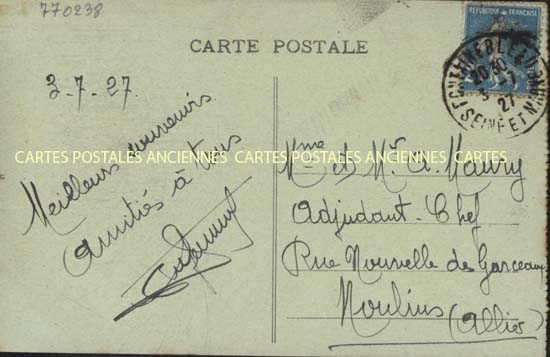 770238
CARTE POSTALE
REPUBLIQUE FRANÇAISE
FONTAINEBLEAU
20 30
3 - 7
27
SEINE ET MARNE
3-7-27.
Meilleurs souvenirs
Amitiés à tous
CARTES POSTALES ANCIENNES CARTES POSTALES ANCIENNES CARTES
Mme et Mr A. Maury
Adjudant-Chef
Rue Nouvelle des Garceaux
Moulins (Allier)